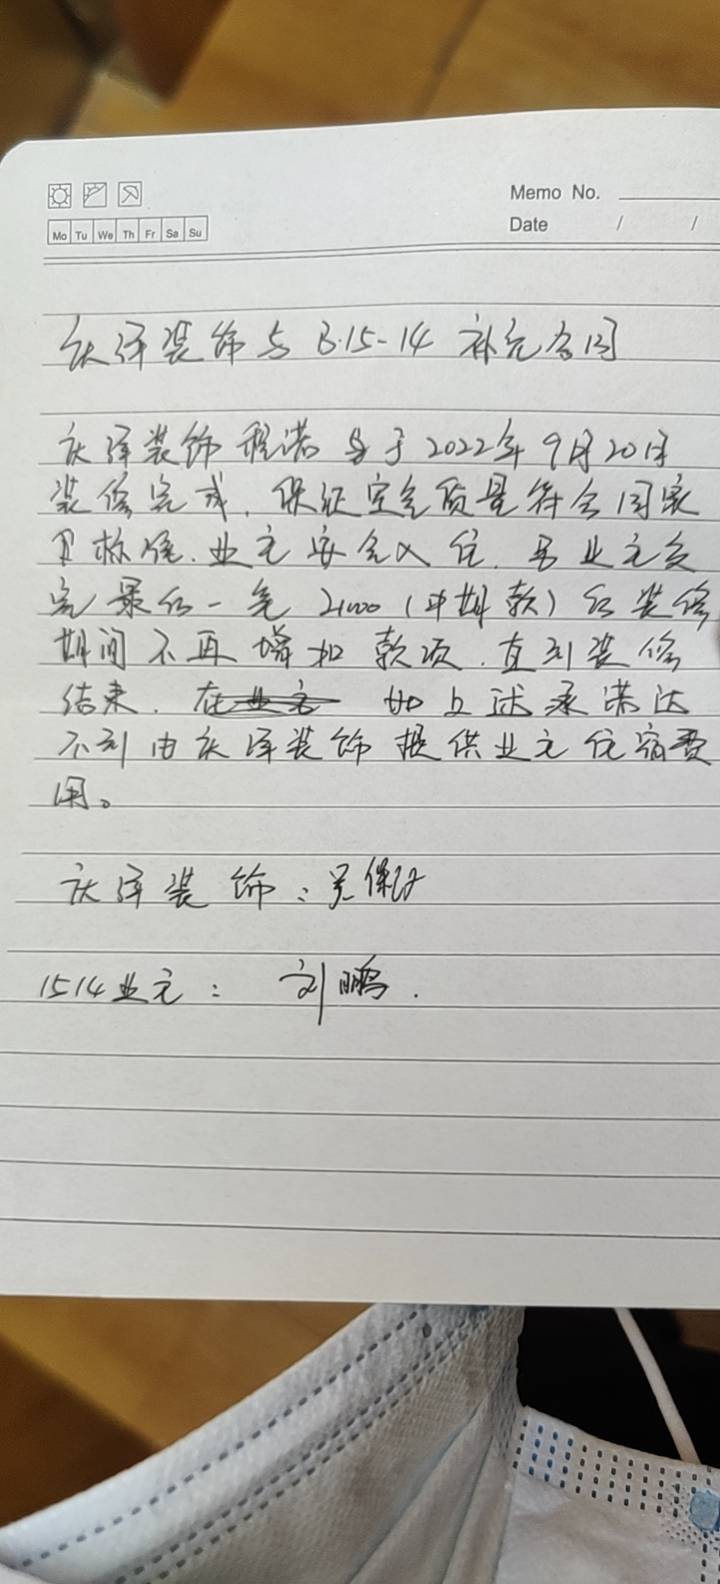 Memo No.
Mo Tu We Th Fr Sa Su
Date / /
庆泽装饰与B·15-14补充合同
庆泽装饰 于2022年9月20日
装修完成，保证空气质量符合国家
标准，业主安全入住，另业主交
完最后一笔 21000（中期款）后装修
期间不再增加款项，直到装修
结束，如上述承诺达
不到由庆泽装饰提供业主住宿费
用。
庆泽装饰：
1514业主：刘鹏.